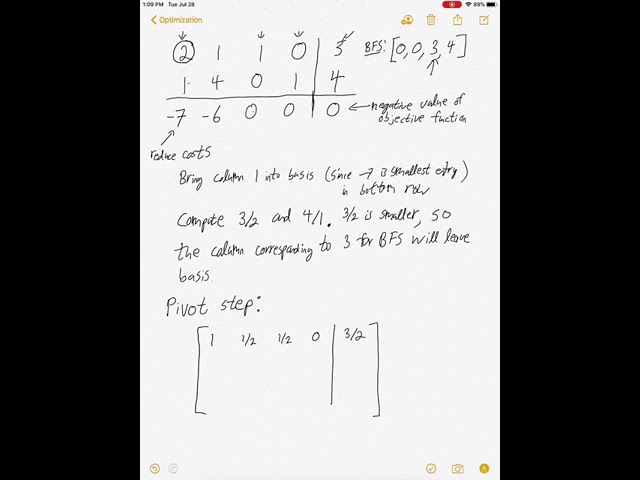 1:09 PM Tue Jul 28
89%
Optimization
2 1 1 0 3
BFS: [0,0,3,4]
1 4 0 1 4
-7 -6 0 0 0
negative value of
objective fuction
reduce costs
Bring column 1 into basis (since -7 is smallest entry)
in bottom row
Compute 3/2 and 4/1. 3/2 is smaller, so
the column corresponding to 3 for BFS will leave
basis.
Pivot step:
1 1/2 1/2 0 3/2